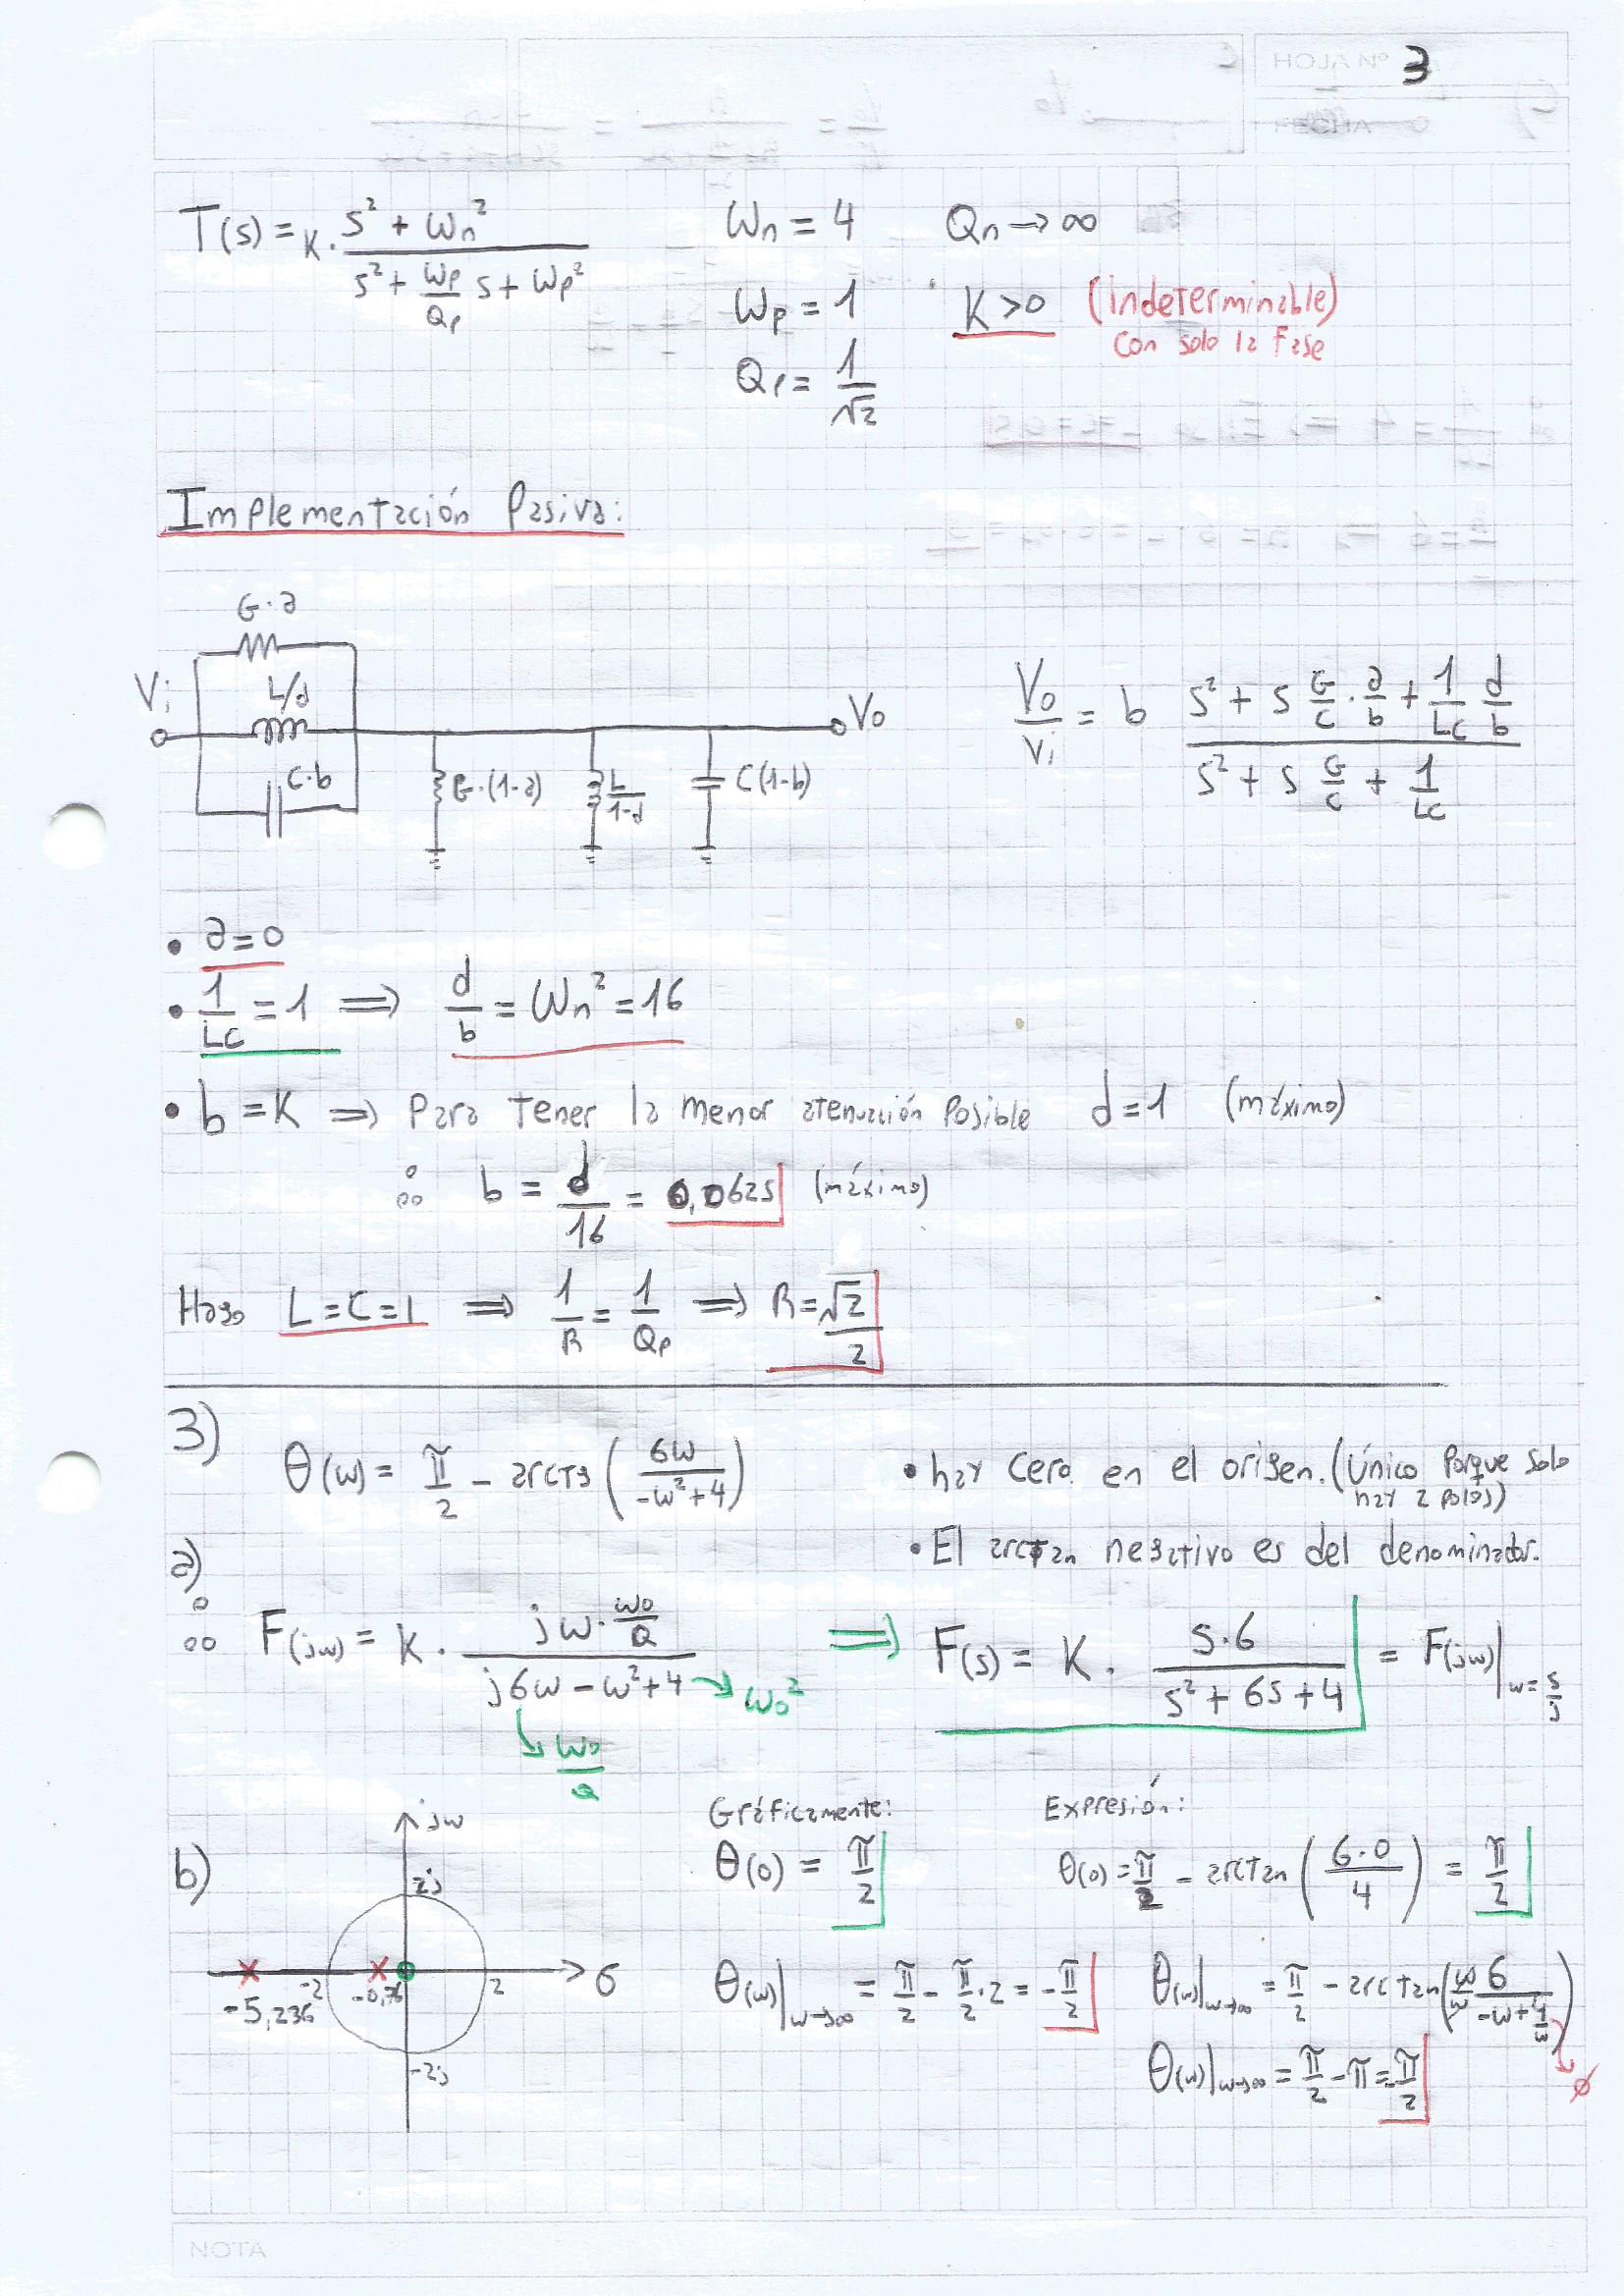 HOJA Nº 3
FECHA
T(s) = K · (s² + ωn²) / (s² + (ωp/Qp) s + ωp²)   ωn = 4   Qn → ∞
ωp = 1   K > 0 (indeterminable)
con solo la Fase
Qp = 1/√2
Implementación Pasiva:
G·a
Vi   L/d   Vo
C·b   G·(1-a)   L/(1-d)   C(1-b)
Vo/Vi = b (s² + s (G/C)·(a/b) + (1/LC)(d/b)) / (s² + s G/C + 1/LC)
• a = 0
• 1/LC = 1 ⟹ d/b = ωn² = 16
• b = K ⟹ Para tener la menor atenuación posible d = 1 (máximo)
∴ b = d/16 = 0,0625 (máximo)
Hago L = C = 1 ⟹ 1/R = 1/Qp ⟹ R = √2/2
3) θ(ω) = π/2 - arctg (6ω / (-ω²+4))   • hay cero en el origen. (Único porque solo
hay 2 polos)
• El arctan negativo es del denominador.
a)
∴ F(jω) = K · (jω · ω0/Q) / (j6ω - ω² + 4) → ω0²   ⟹ F(s) = K · (s·6) / (s² + 6s + 4) = F(jω)|ω = s/j
↳ ω0/Q
jω   Gráficamente:   Expresión:
b)   2j   θ(0) = π/2   θ(0) = π/2 - arctan (6·0 / 4) = π/2
-5,236   -2   -0,76   2   σ   θ(ω)|ω→∞ = π/2 - π/2·2 = -π/2   θ(ω)|ω→∞ = π/2 - arctan (ω/ω 6 / (-ω + 4/ω)) → ∅
-2j   θ(ω)|ω→∞ = π/2 - π = -π/2
NOTA